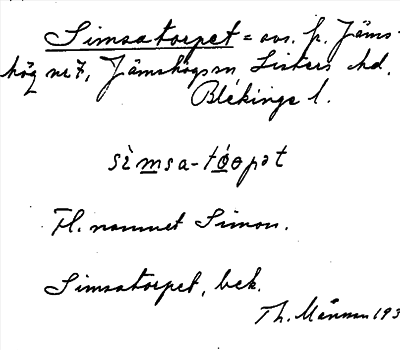 Simsatorpet = avs. fr. Jäms-
hög nr 7, Jämshögs sn Listers hd.
Blekinge l.
sìmsa-tóopət
Fl. namnet Simon.
Simsatorpet, bek.
Th. 193